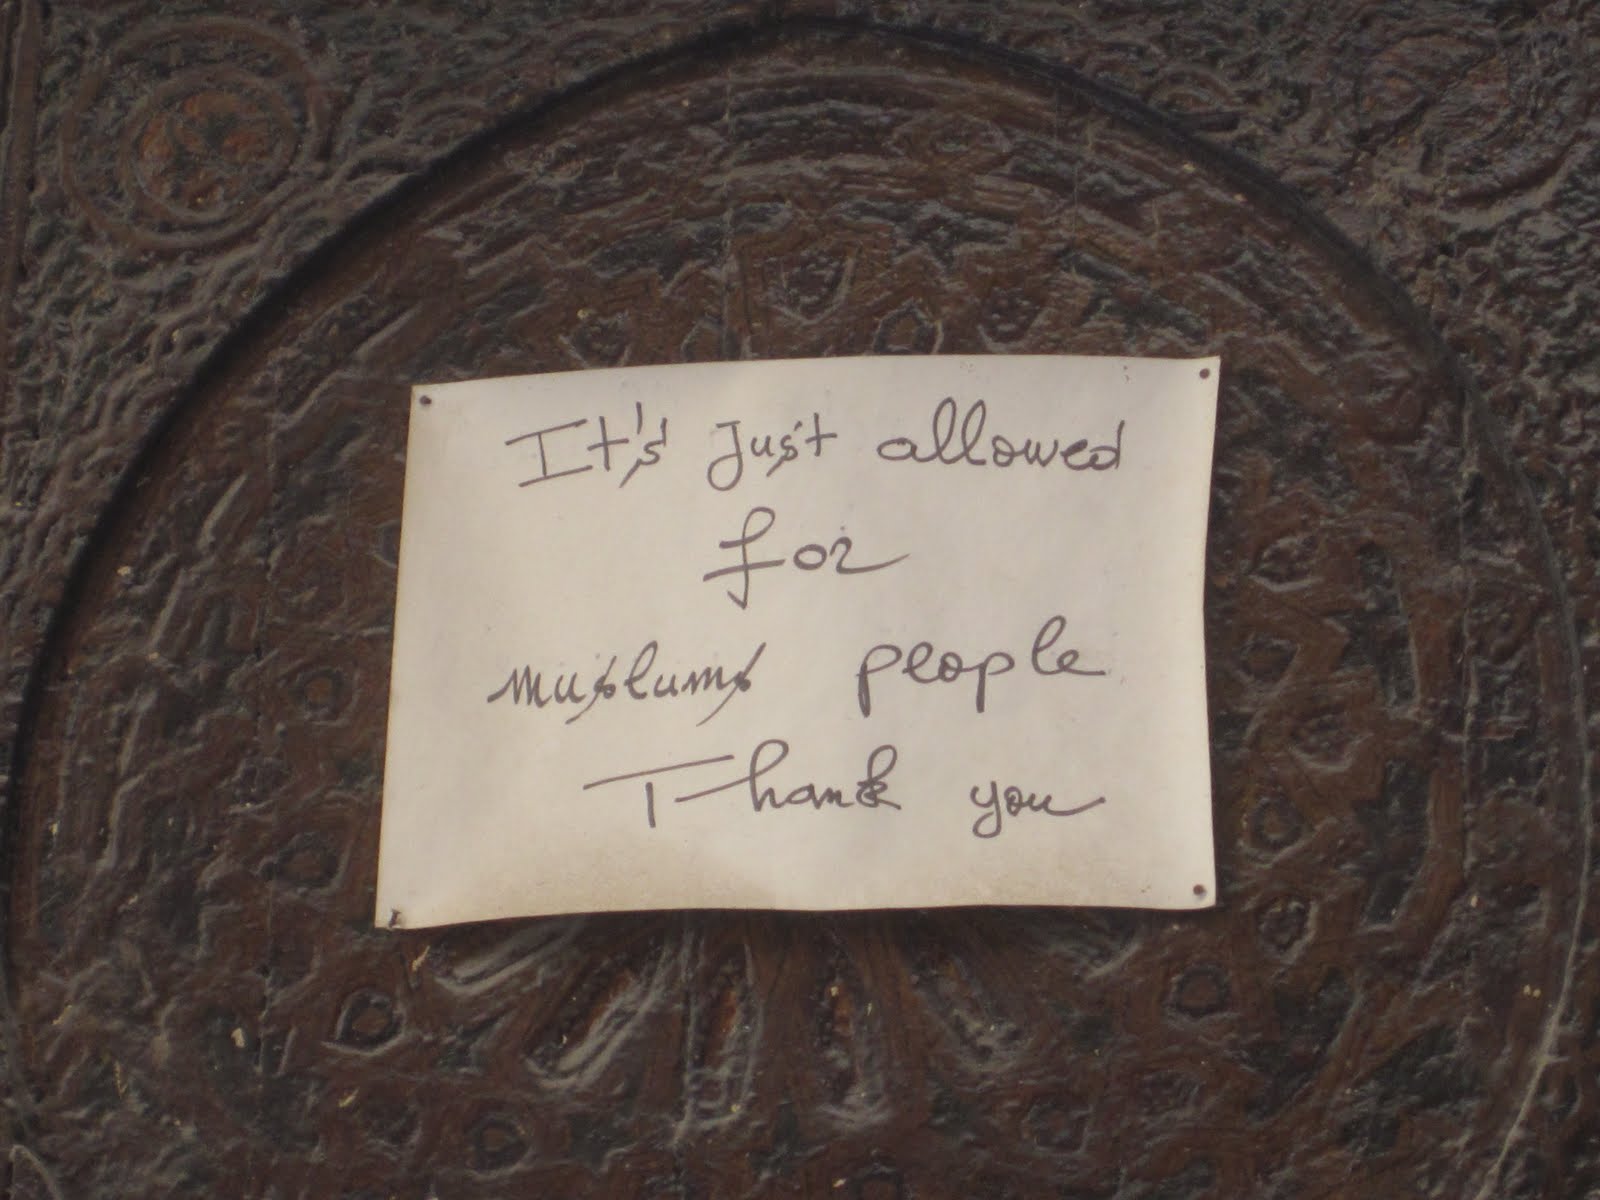 It's Just allowed
for
muslums people
Thank you